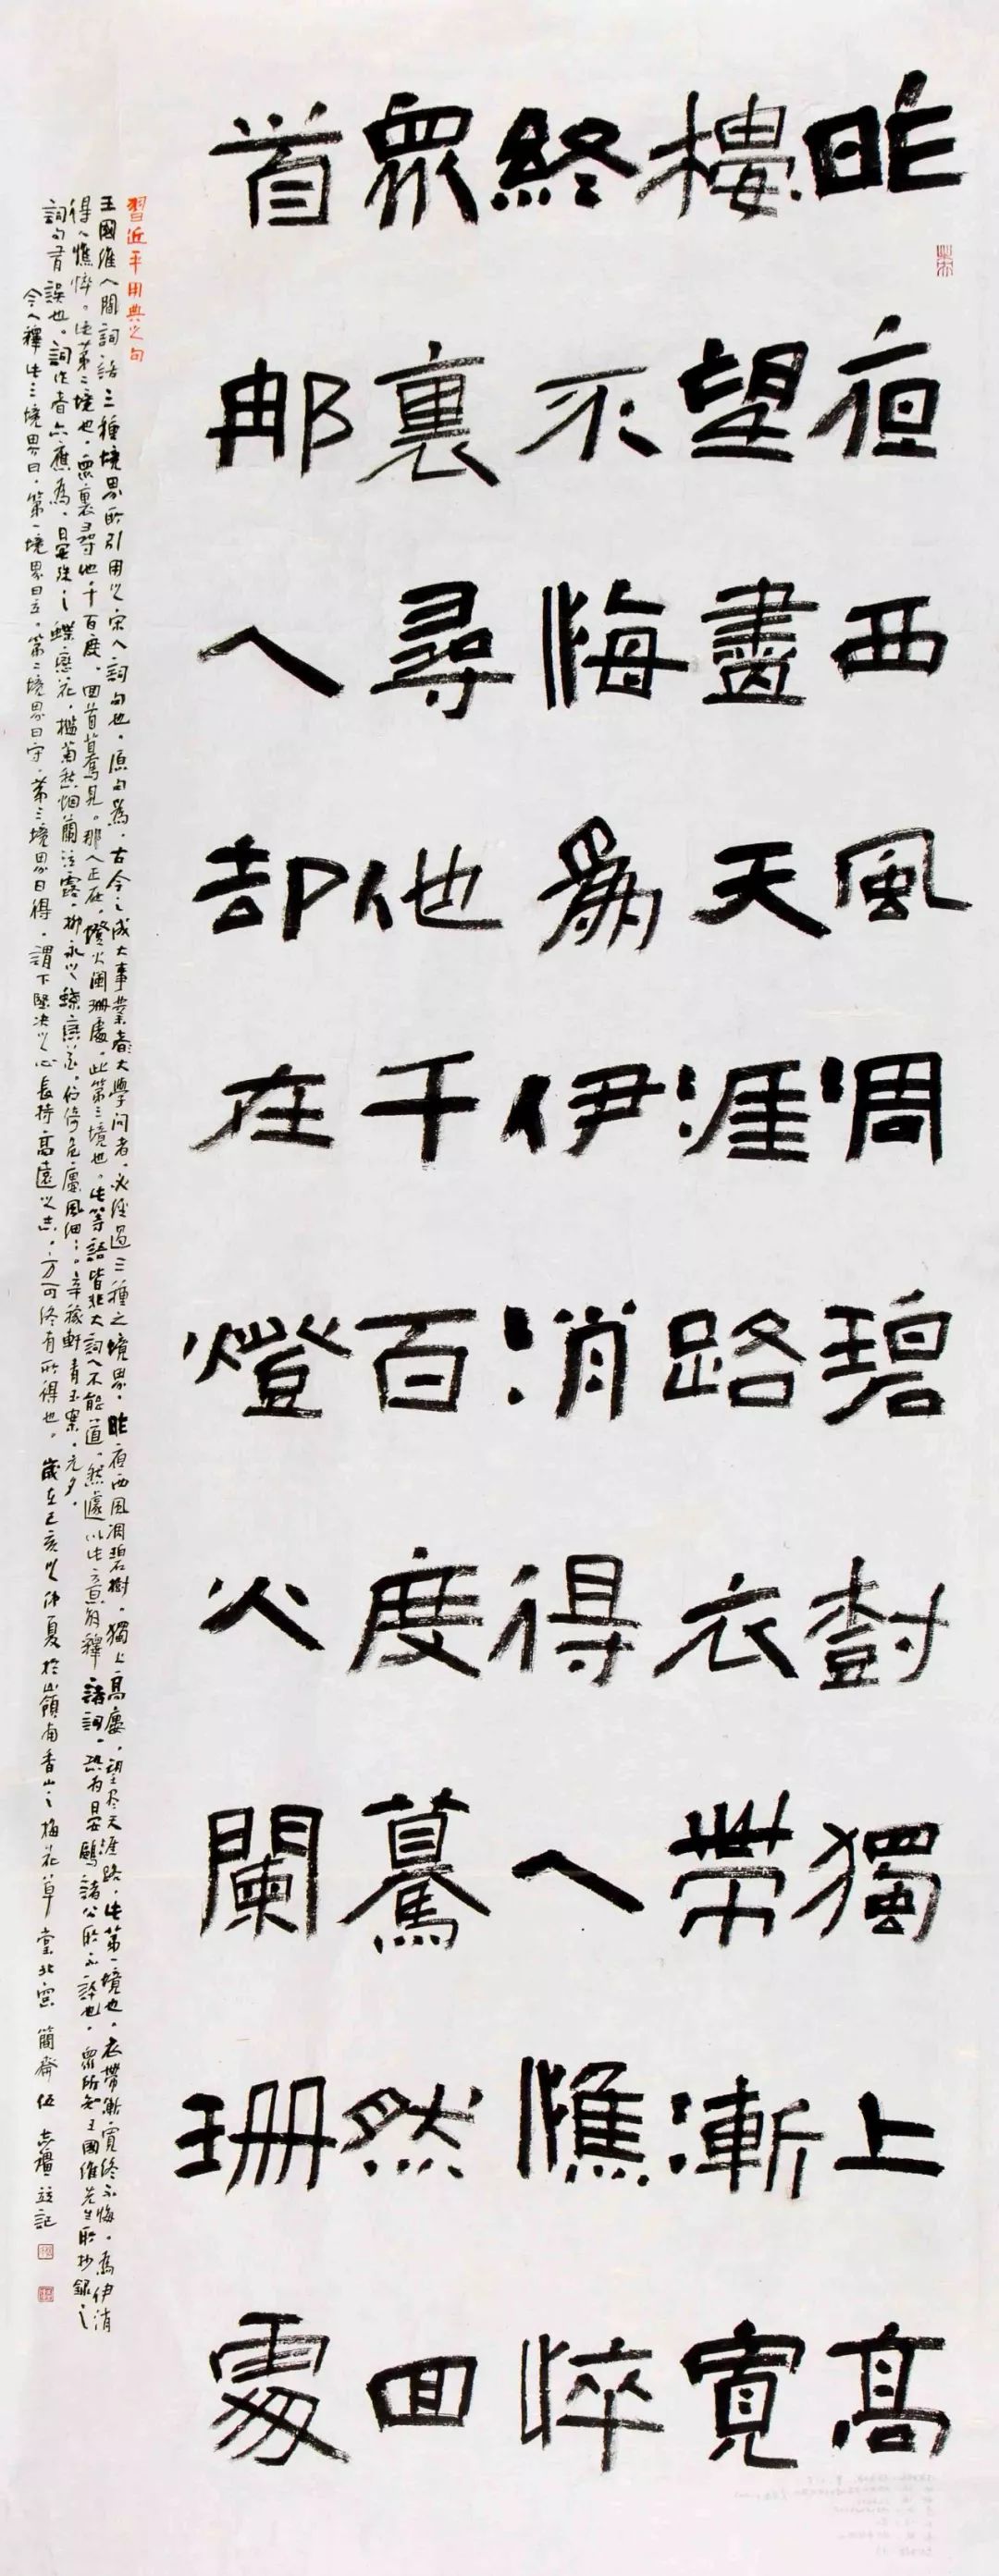 昨夜西風凋碧樹獨上高
樓望盡天涯路衣帶漸寬
終不悔為伊消得人憔悴
眾裏尋他千百度驀然回
首那人却在燈火闌珊處
習近平用典之句
王國維人間詞話三種境界所引用之宋人詞句也原句為古今之成大事業者大學問者必經過三種之境界昨夜西風凋碧樹獨上高樓望盡天涯路此第一境也衣帶漸寬終不悔為伊消
得人憔悴此第二境也眾裏尋他千百度回首驀見那人正在燈火闌珊處此第三境也此等語皆非大詞人不能道然遽以此意解釋諸詞恐為晏歐諸公所不許也眾所知王國維先生所抄錄之
詞句有誤也詞作者亦應為晏殊之蝶戀花檻菊愁烟蘭泣露柳永之蝶戀花佇倚危樓風細細辛稼軒青玉案元夕
今人釋此三境界曰第一境界曰立第二境界曰守第三境界曰得謂下堅決之心長持高遠之志方可終有所得也歲在己亥之仲夏於嶺南香山之梅花草堂北窗簡齋伍並記